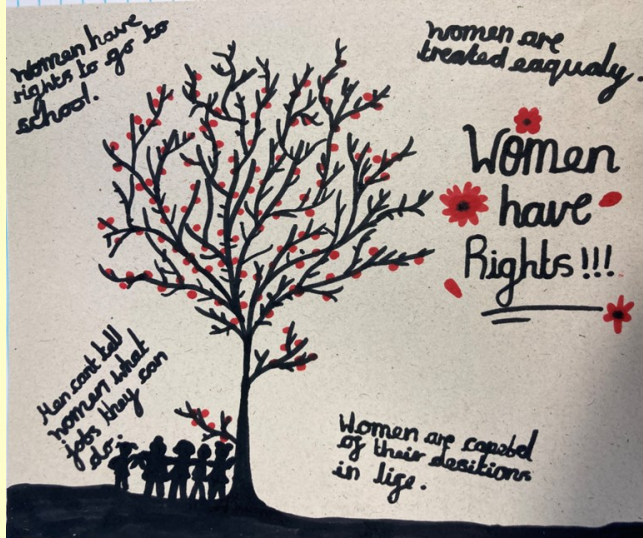 Women have
rights to go to
school.
Women are
treated eaqualy.
Women
have
Rights!!!
Men cant tell
women what
jobs they can
do.
Women are capebel
of their desitions
in life.